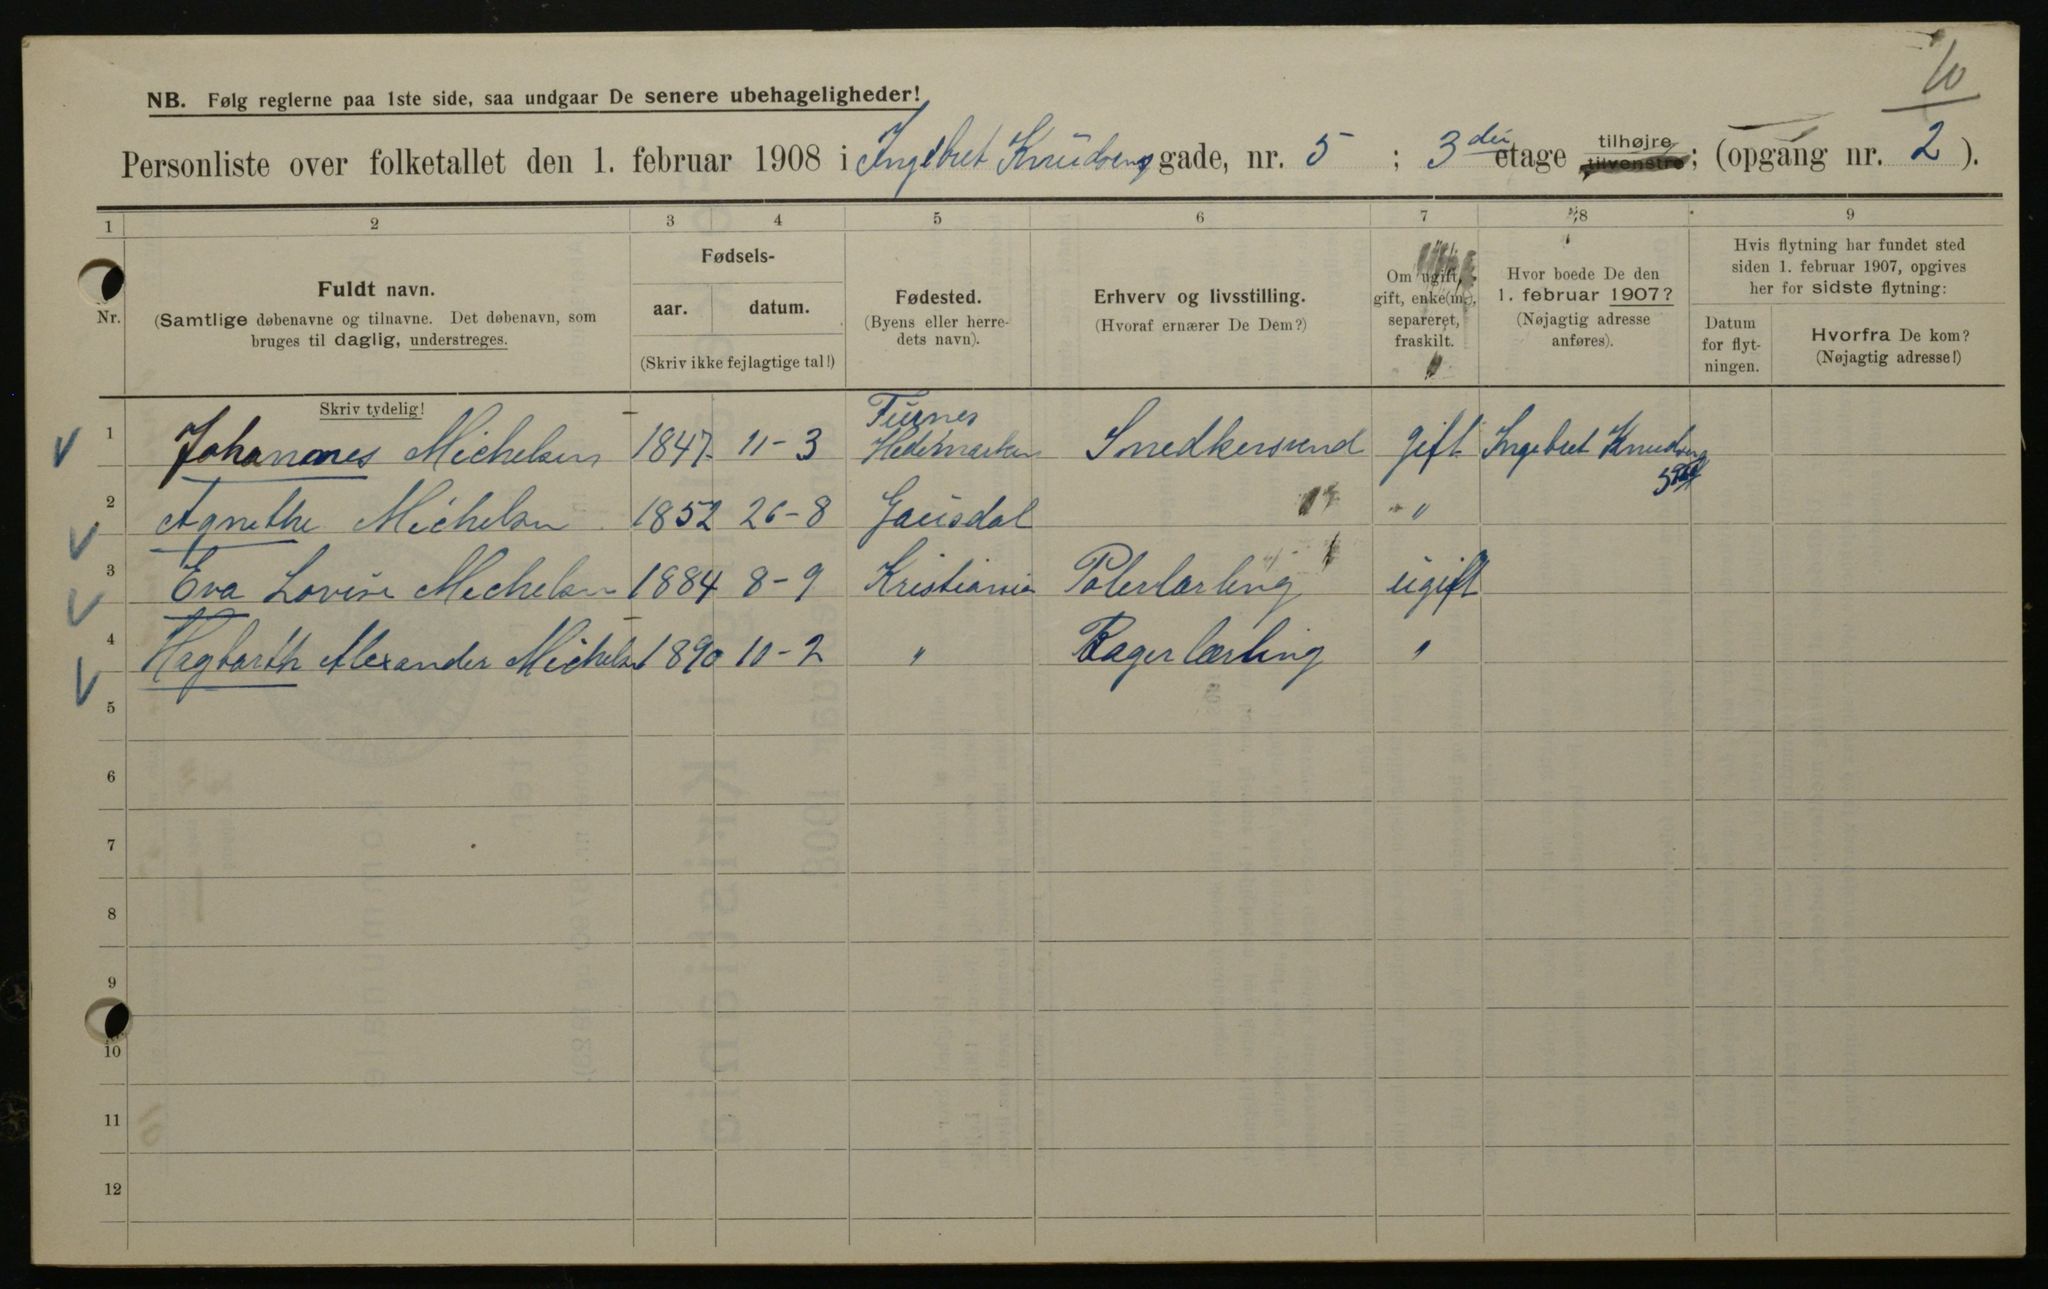 10
NB. Følg reglerne paa 1ste side, saa undgaar De senere ubehageligheder!
Personliste over folketallet den 1. februar 1908 i Ingebret Knudsens gade, nr. 5 ; 3die etage tilhøjre tilvenstre; (opgang nr. 2 ).
1 2 3 4 5 6 7 8 9
Nr.
Fuldt navn.
(Samtlige døbenavne og tilnavne. Det døbenavn, som
bruges til daglig, understreges.
Fødsels-
aar. datum.
(Skriv ikke fejlagtige tal!)
Fødested.
(Byens eller herre-
dets navn).
Erhverv og livsstilling.
(Hvoraf ernærer De Dem?)
Om ugift,
gift, enke(m.),
separeret,
fraskilt.
Hvor boede De den
1. februar 1907?
(Nøjagtig adresse
anføres).
Hvis flytning har fundet sted
siden 1. februar 1907, opgives
her for sidste flytning:
Datum
for flyt-
ningen.
Hvorfra De kom?
(Nøjagtig adresse!)
Skriv tydelig!
1 Johannes Michelsen 1847 11-3 Furnes Hedemarken Snedkersvend gift Ingebret Knudsens
2 Agnethe Michelsen 1852 26-8 Gausdal "
3 Eva Lovise Michelsen 1884 8-9 Kristiania Polerlærling ugift
4 Hagbarth Alexander Michelsen 1890 10-2 " Bagerlærling "
5
6
7
8
9
10
11
12